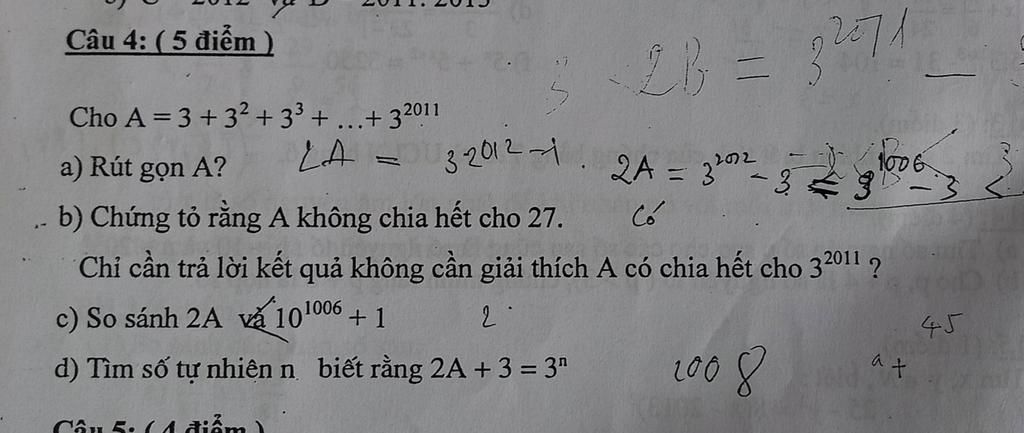 Câu 4: ( 5 điểm )
2B = 3^2071 -
Cho A = 3 + 3² + 3³ + …+ 3^2011
a) Rút gọn A? 2A = 3^2012 -1. 2A = 3^2012 - 3
b) Chứng tỏ rằng A không chia hết cho 27. Có
Chỉ cần trả lời kết quả không cần giải thích A có chia hết cho 3^2011 ?
c) So sánh 2A và 10^1006 + 1 2
45
d) Tìm số tự nhiên n biết rằng 2A + 3 = 3ⁿ 1008 a+
Câu 5: ( 4 điểm )